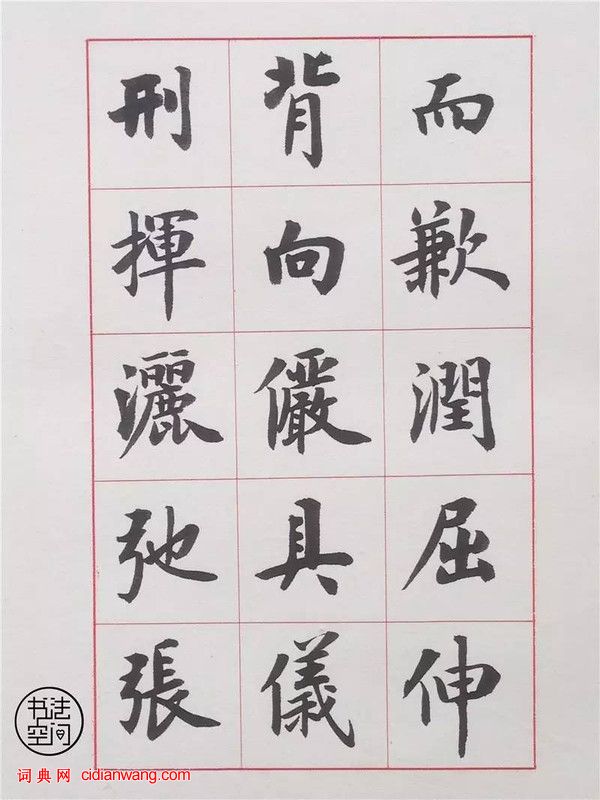 而歉潤屈伸
背向儼具儀
刑揮灑弛張
书法空间
词典网 cidianwang.com